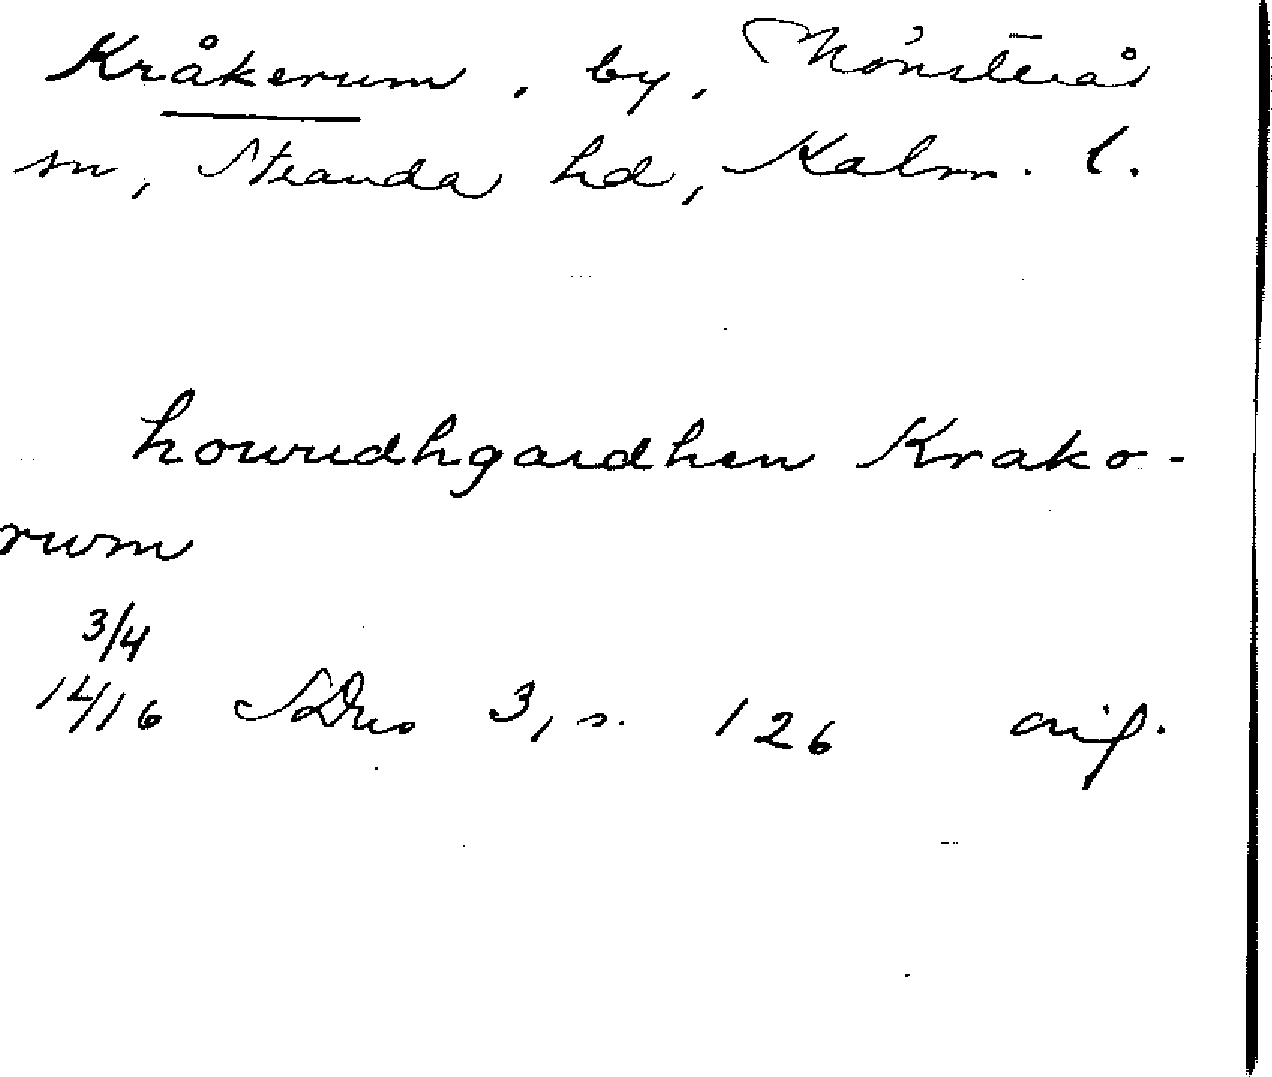 Kråkerum, by, Mönsterås
sn, Stranda hd, Kalm. l.
howudhgardhen Krako-
rum
3/4
1416 SDns 3, s. 126 orig.